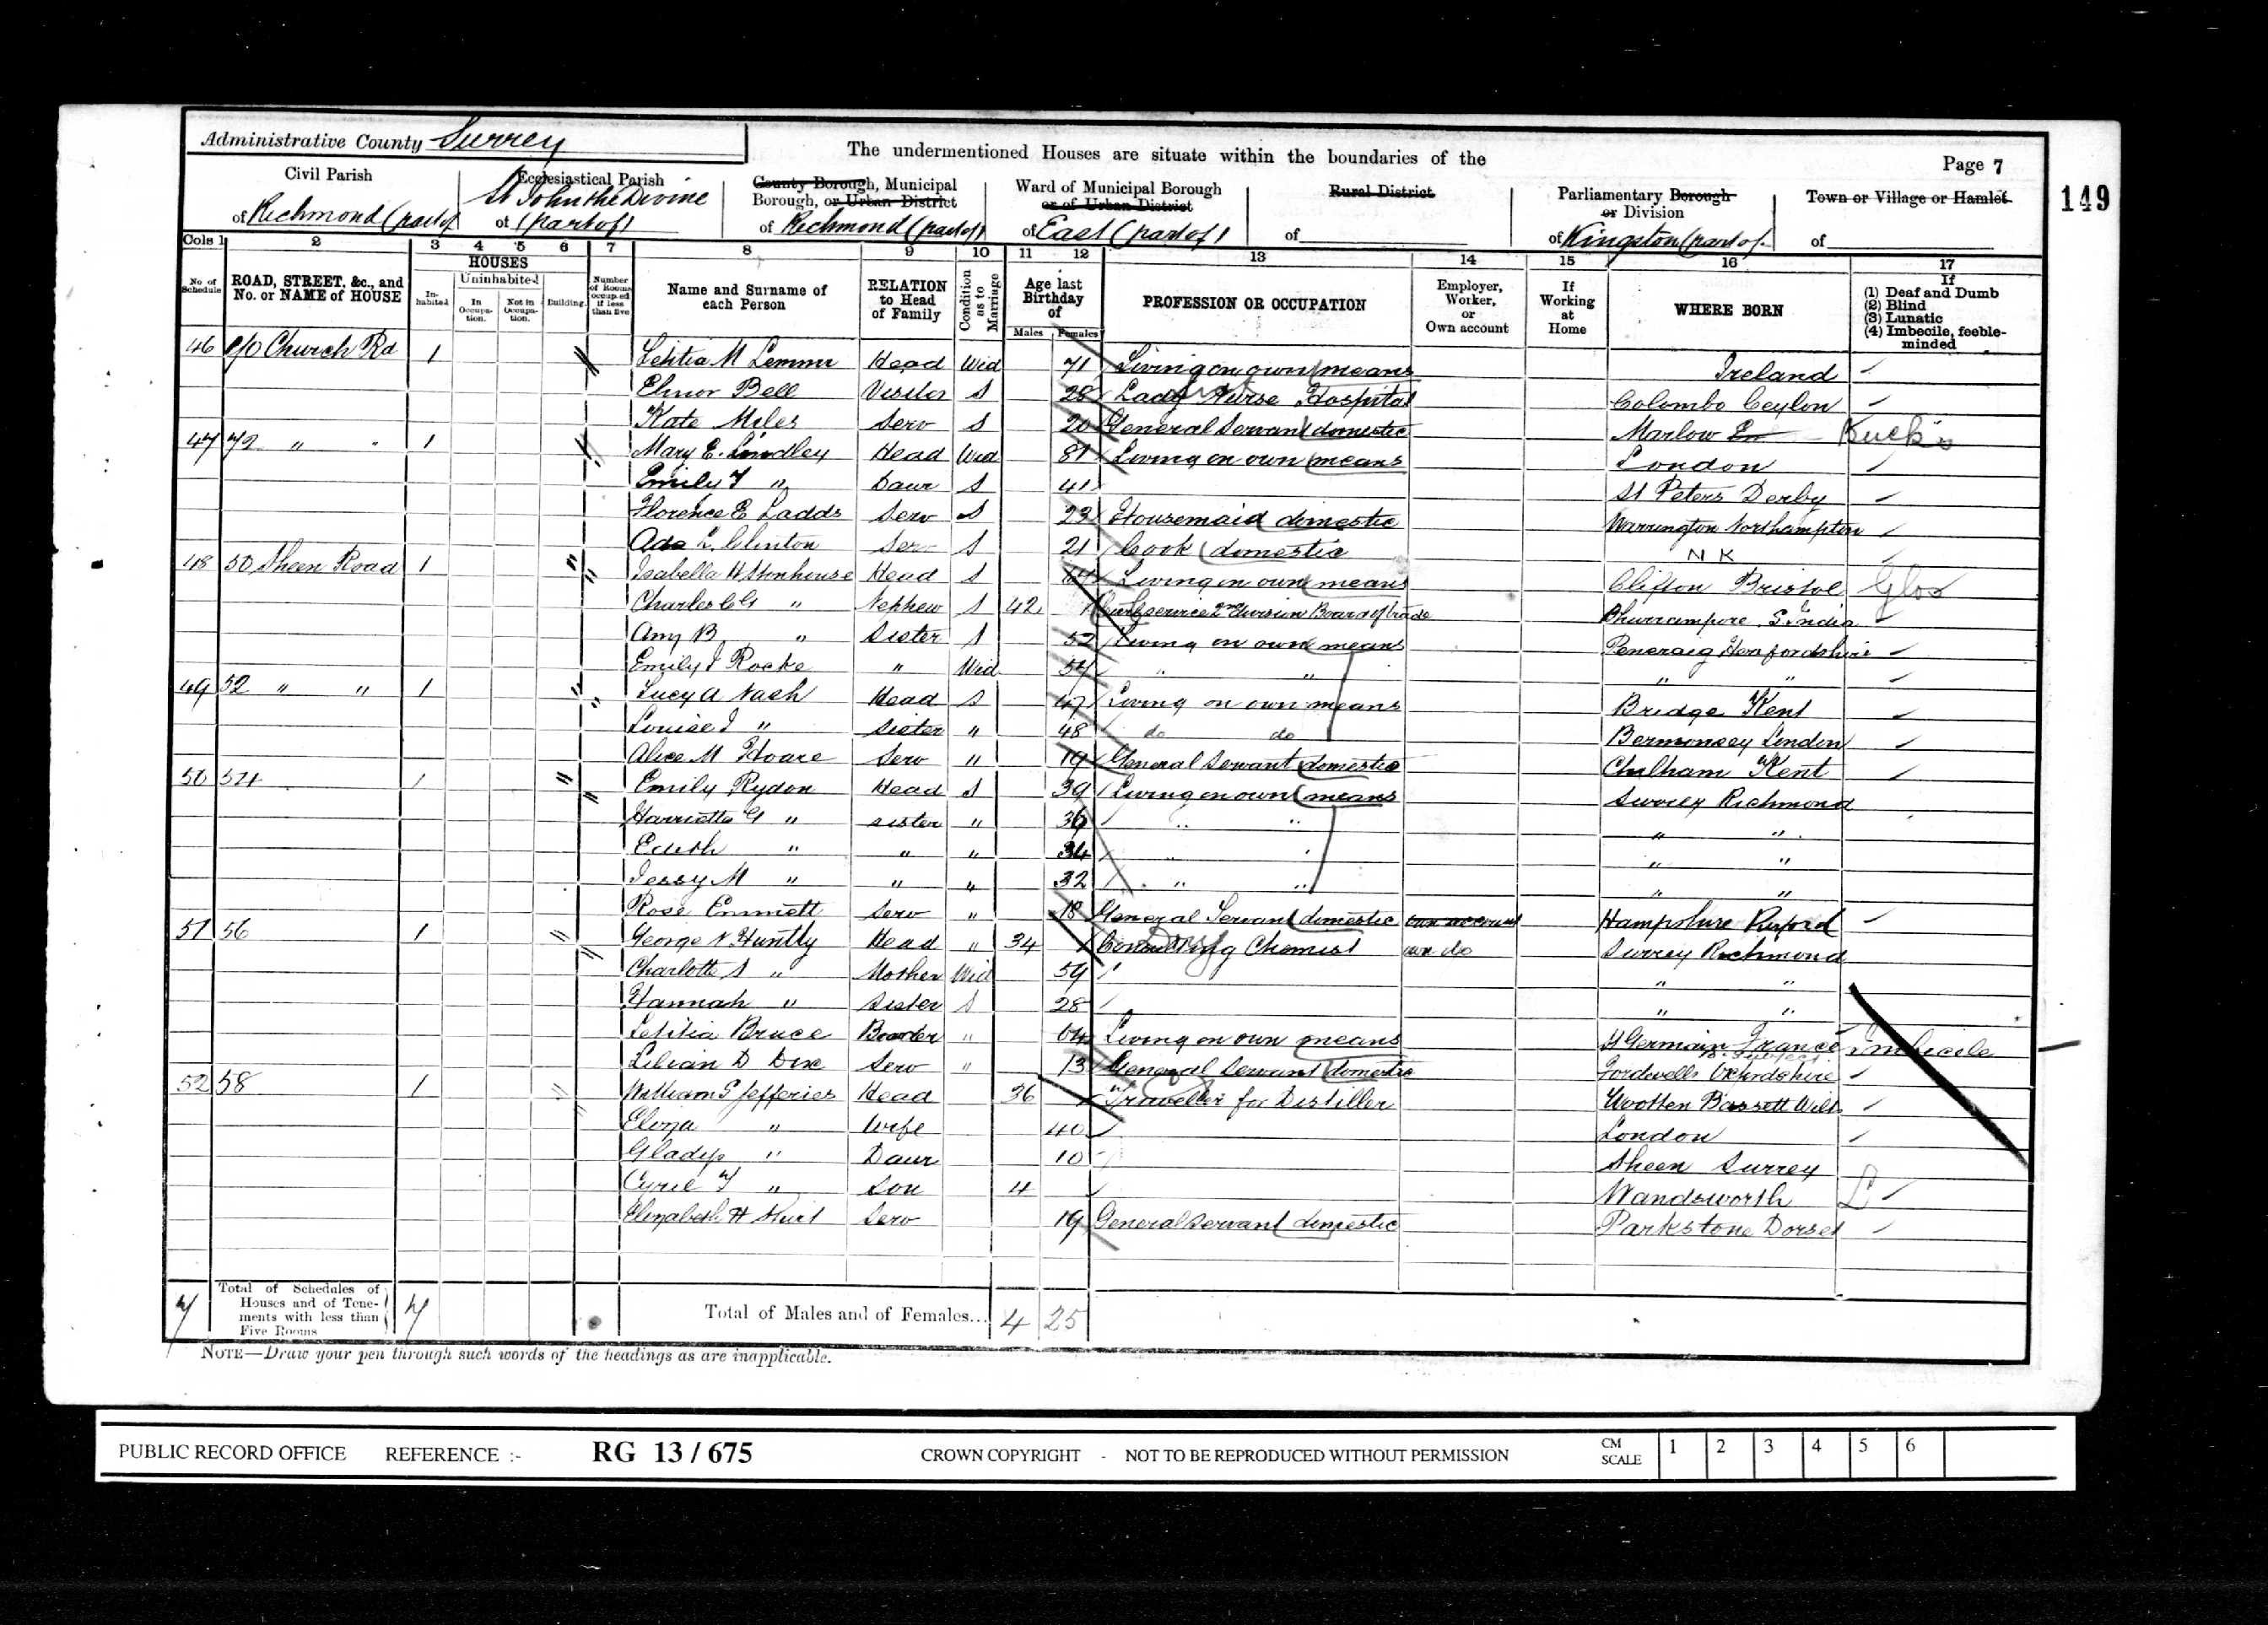 Administrative County Surrey
The undermentioned Houses are situate within the boundaries of the
Page 7
149
Civil Parish
of Richmond (part of
Ecclesiastical Parish
St John the Divine
of (part of)
County Borough, Municipal
Borough, or Urban District
of Richmond (part of)
Ward of Municipal Borough
or of Urban District
of East (part of)
Rural District
of
Parliamentary Borough
or Division
of Kingston (part of.
Town or Village or Hamlet
of
Cols 1 2 3 4 5 6 7 8 9 10 11 12 13 14 15 16 17
No of Schedule
ROAD, STREET, &c., and No. or NAME of HOUSE
HOUSES
In-habited
Uninhabited
In Occupa-tion.
Not in Occupa-tion.
Building.
Number of Rooms occupied if less than five
Name and Surname of each Person
RELATION to Head of Family
Condition as to Marriage
Age last Birthday of
Males Females
PROFESSION OR OCCUPATION
Employer, Worker, or Own account
If Working at Home
WHERE BORN
If
(1) Deaf and Dumb
(2) Blind
(3) Lunatic
(4) Imbecile, feeble-minded
46 Church Rd 1 Letitia M Head Wid 71 Living on own means Ireland
Elinor Bell Visitor S 28 Lady Nurse Hospital Colombo Ceylon
Kate Miles Serv S 20 General Servant domestic Marlow Bucks
47 72 " " 1 Mary E. Lindley Head Wid 81 Living on own means London
Emily " Daur S 41 St Peters Derby
Florence E Ladds Serv S 23 Housemaid domestic Warrington Northampton
Ada L. Clinton Serv S 21 Cook domestic N K
48 50 Sheen Road 1 Isabella H Stonhouse Head S Living on own means Clifton Bristol Glos
Charles " Nephew S 42 Civil service 2nd Division Board of Trade India
Amy B " Sister S 52 Living on own means Pencraig Herefordshire
Emily Rocke " Wid 54 " " " "
49 52 " " 1 Lucy A Nash Head S 47 Living on own means Bridge Kent
Louise " Sister " 48 do do Bermonsey London
Alice M Hoare Serv " 19 General Servant domestic Chilham Kent
50 54 1 Emily Rydon Head S 39 Living on own means Surrey Richmond
Harriette G " sister " 36 " " " "
Edith " " " 34 " " " "
Jessy M " " " 32 " " " "
Rose Emmett Serv " 18 General Servant domestic own account Hampshire
51 56 1 George N Huntly Head " 34 Consulting Chemist own do Surrey Richmond
Charlotte S " Mother Wid 59 " "
Hannah " Sister S 28 " "
Letitia Bruce Boarder " 64 Living on own means St Germain France Imbecile
Lilian D Dix Serv " 13 General Servant domestic Fordwells Oxfordshire
52 58 1 William S Jefferies Head 36 Traveller for Distiller Wootten Bassett Wilts
Eliza " Wife 40 London
Gladys " Daur 10 Sheen Surrey
Cyril " Son 4 Wandsworth L
Elizabeth H Serv 19 General Servant domestic Parkstone Dorset
7 Total of Schedules of Houses and of Tene-ments with less than Five Rooms 7
Total of Males and of Females... 4 25
NOTE—Draw your pen through such words of the headings as are inapplicable.
PUBLIC RECORD OFFICE REFERENCE :- RG 13 / 675 CROWN COPYRIGHT - NOT TO BE REPRODUCED WITHOUT PERMISSION CM SCALE 1 2 3 4 5 6